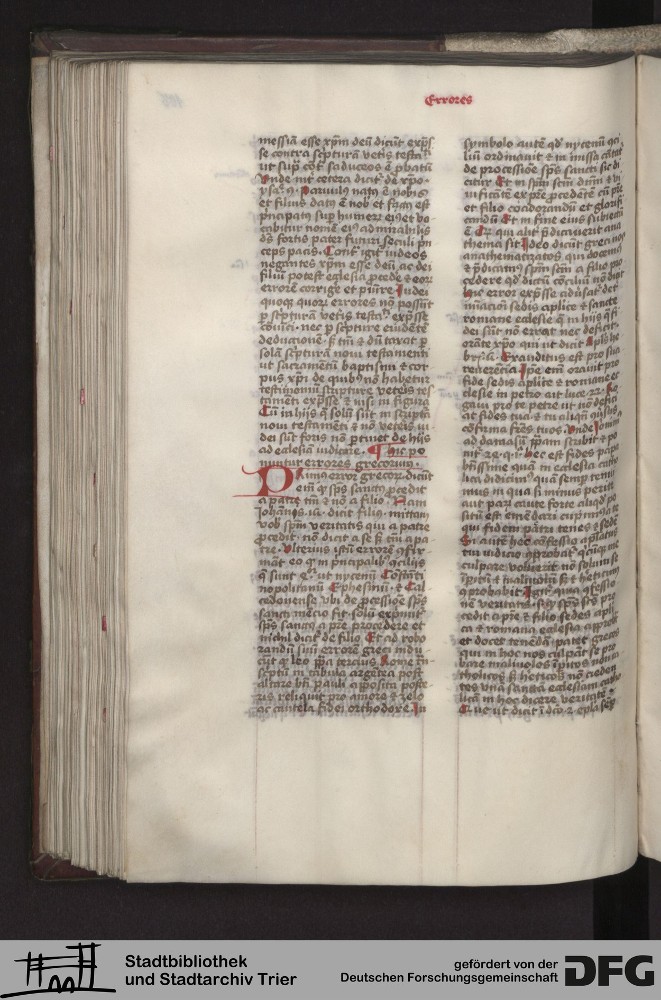 Errores
messiā esse xp̄m deū dicūt exp̄s
se contra scpturā vetis testi
ut sup̄ cōt saduceos ē pbatū
Vnde int cetera dicit de xpo
ysa. 9. Paruulus natus ē nobis
et filius datus ē nob et factus est
pncipatus sup humerū eius et vo
cabitur nomē eius admirabilis
ds fortis pater futuri seculi pn
ceps pacis. Cont igit iudeos
negantes xp̄m esse deū ac dei
filiū potest eglesia pcede et eorū
errorē corrige et punire Iudei
quoque quorū errores nō possūt
p scpturā vetis testi expsse
cōuinci nec p scpture euidētē
deductionē s tm̄ et dū taxat p
solā scpturā noui testamenti
ut sacramētū baptismi et cor
pus xpi de quibus nō habetur
testimoniū scripture veteris tes
tamēti expsse et nisi in figura
Cū in hijs que solū sūt in scptura
noui testamēti et nō veteris iu
dei sūt foris nō ptinet de hijs
ad ecclesiā iudicare. Hic po
nuntur errores grecorum.
Primus error grecorū dicūt
enim quod sps sanctus pcedit
a patre tm̄ et nō a filio. Nam
Johānis. dicit filius mittam
vob spm̄ veritatis qui a patre
pcedit. nō dicit a se s tm̄ a pa
tre. Vlterius istū errorē cōfir
māt eo quod in pncipalibus cōcilijs
que sunt ut nycenū Costāti
nopolitanū Ephesinū et Cal
cedonense vbi de pcessione sps
sancti mēcio fit solū exprimit
sps sanctus a pre procedere et
nichil dicit de filio Et ad robo
randū suū errorē greci indu
cūt quod leo papa tercius Rome
scptū in tabula argētea post
altare bti pauli apposita poste
ris reliquit pro amore et zelo
ac cautela fidei orthodoxe In
symbolo autē qd nycenū cōci
liū ordinauit et in missa cātat
de processiōe sps sancti sic di
citur Et in spm scm dnm et vi
uificātē ex pre pcedētē cū pre
et filio coadorandū et glorifi
candū Et in fine eius subiectū
ē Qui aliter pdicauerit ana
thema sit Ideo dicūt greci nos
anathematizatos qui docemus
et pdicamus spm scm a filio pro
cedere qd dictū cōciliū nō dicit
Hic error expsse aduersatur deter
minacioni sedis aplice et sancte
romane ecclesie que in hijs que fi
dei sūt nō errat nec deficit
orante xpo qui ut dicit apls he
bre. Exauditus est pro sua
reuerēcia Ipse em̄ orauit pro
fide sedis aplice et romane ec
clesie in petro ait luce. 22. Ro
gaui pro te petre ut nō defici
at fides tua et tu aliqn cōuersus
cōfirma fratres tuos. Vnde
ad damasum papam scribit et po
nit 24. q. 1. hec est fides papa
btissime quā in ecclesia catho
lica didicimus quā semp tenui
mus in qua si minus perite
aut parū caute forte aliquid po
situm est emendari cupimus a te
qui fidem petri tenes et sedē
Si autē hec cōfessio aplatus
tui iudicio cōprobatur quicūque me
culpare voluerit nō solum se
īperitū et maliuolū s et hereticū
cōprobabit Igitur quia cōfessio
ne veritatis sit sps scs pro
cedit a pre et filio sedes apli
ca et romana ecclesia approbat
et docet tenendū patet grecos
qui in hoc nos culpāt se pro
bare maliuolos īperitos nō ca
tholicos s hereticos nō creden
tes vnā sanctā ecclesiam catho
licā in hoc dicere veritatē
Que ut dicit
Stadtbibliothek
und Stadtarchiv Trier
gefördert von der
Deutschen Forschungsgemeinschaft
DFG